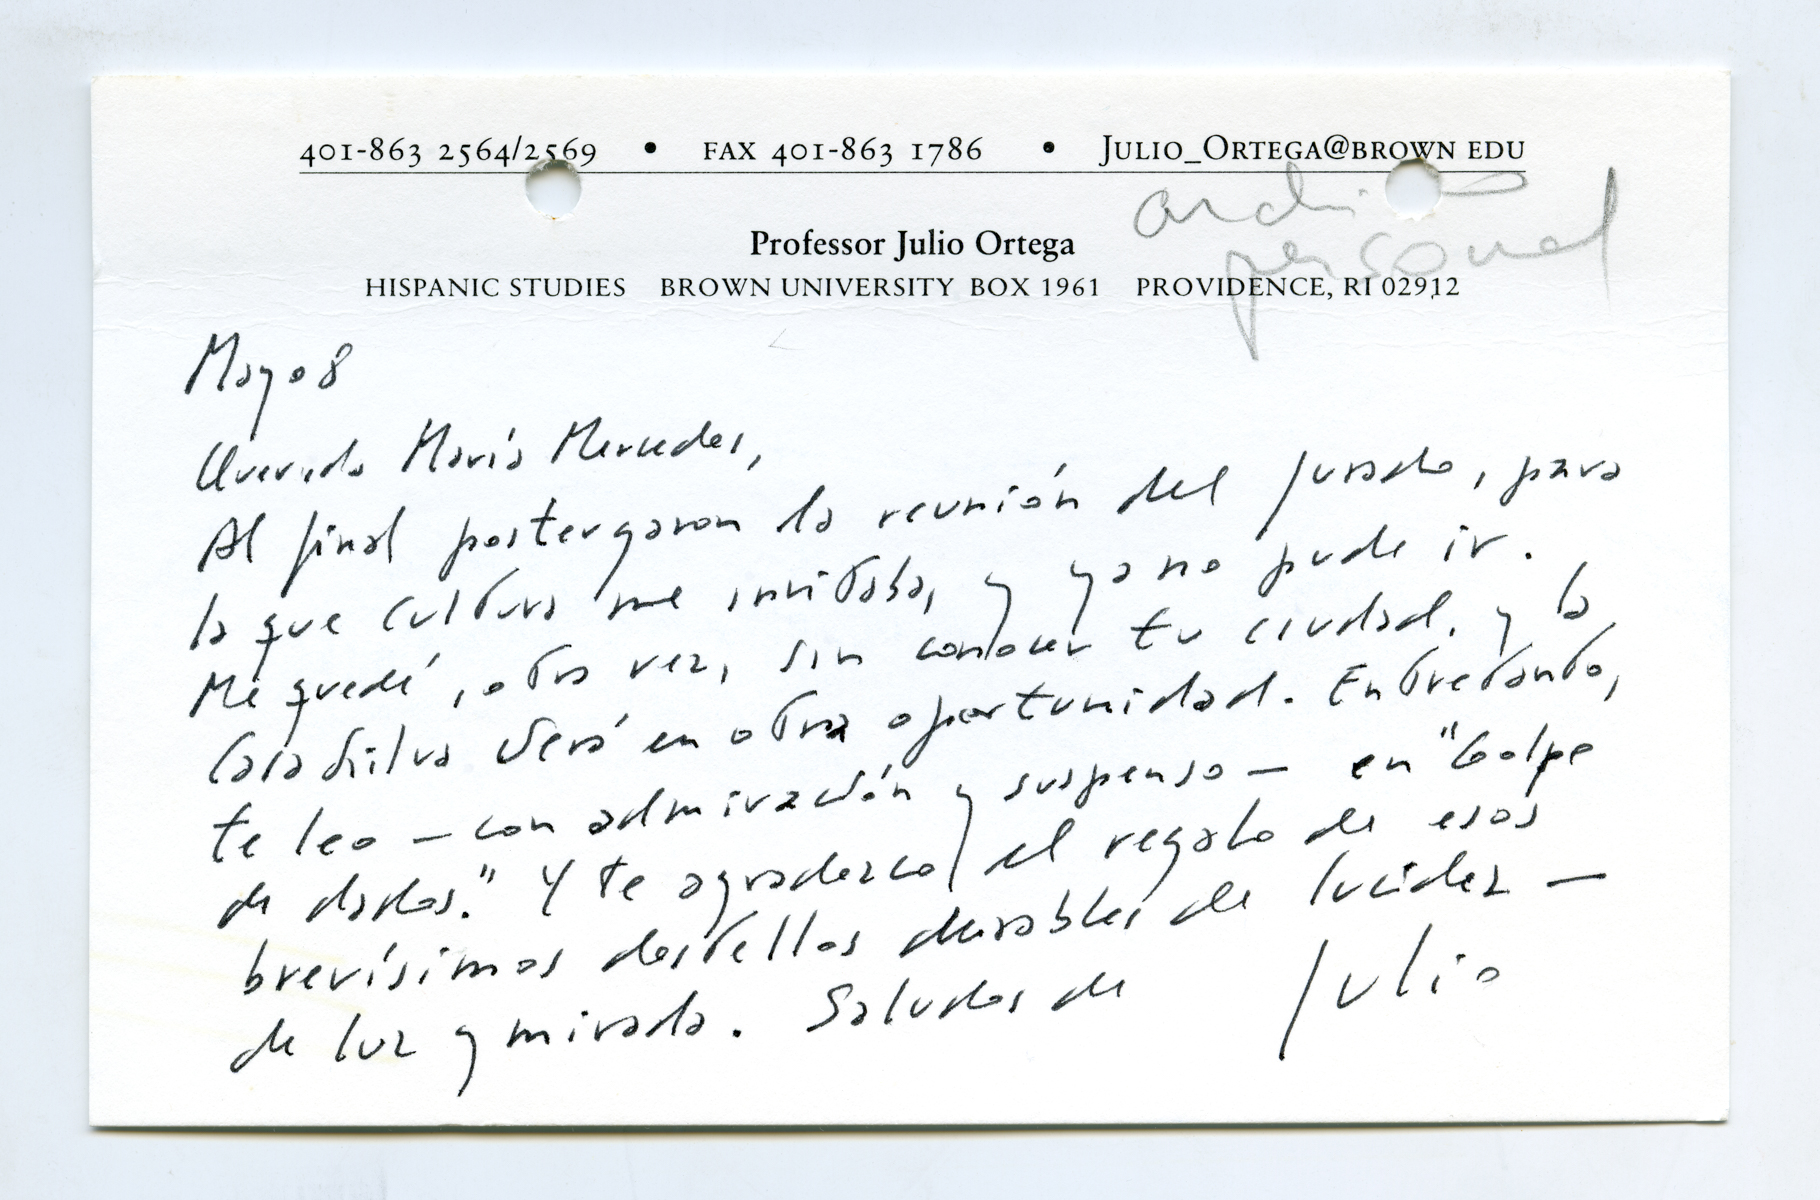 401-863 2564/2569 • FAX 401-863 1786 • JULIO_ORTEGA@BROWN EDU
archivo
personal
Professor Julio Ortega
HISPANIC STUDIES BROWN UNIVERSITY BOX 1961 PROVIDENCE, RI 02912
Mayo 8
Querida María Mercedes,
Al final postergaron la reunión del jurado, para
la que Cultura me invitaba, y ya no pude ir.
Me quedé, otra vez, sin conocer tu ciudad, y la
Casa Silva será en otra oportunidad. Entretanto,
te leo — con admiración y suspenso — en "Golpe
de dados." Y te agradezco el regalo de esos
brevísimos destellos durables de lucidez —
de luz y mirada. Saludos de Julio